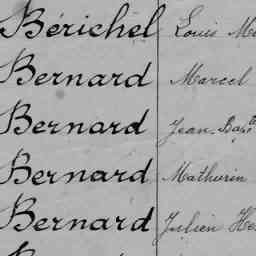 Bérichel Louis M
Bernard Marcel
Bernard Jean-Bapte
Bernard Mathurin
Bernard Julien He